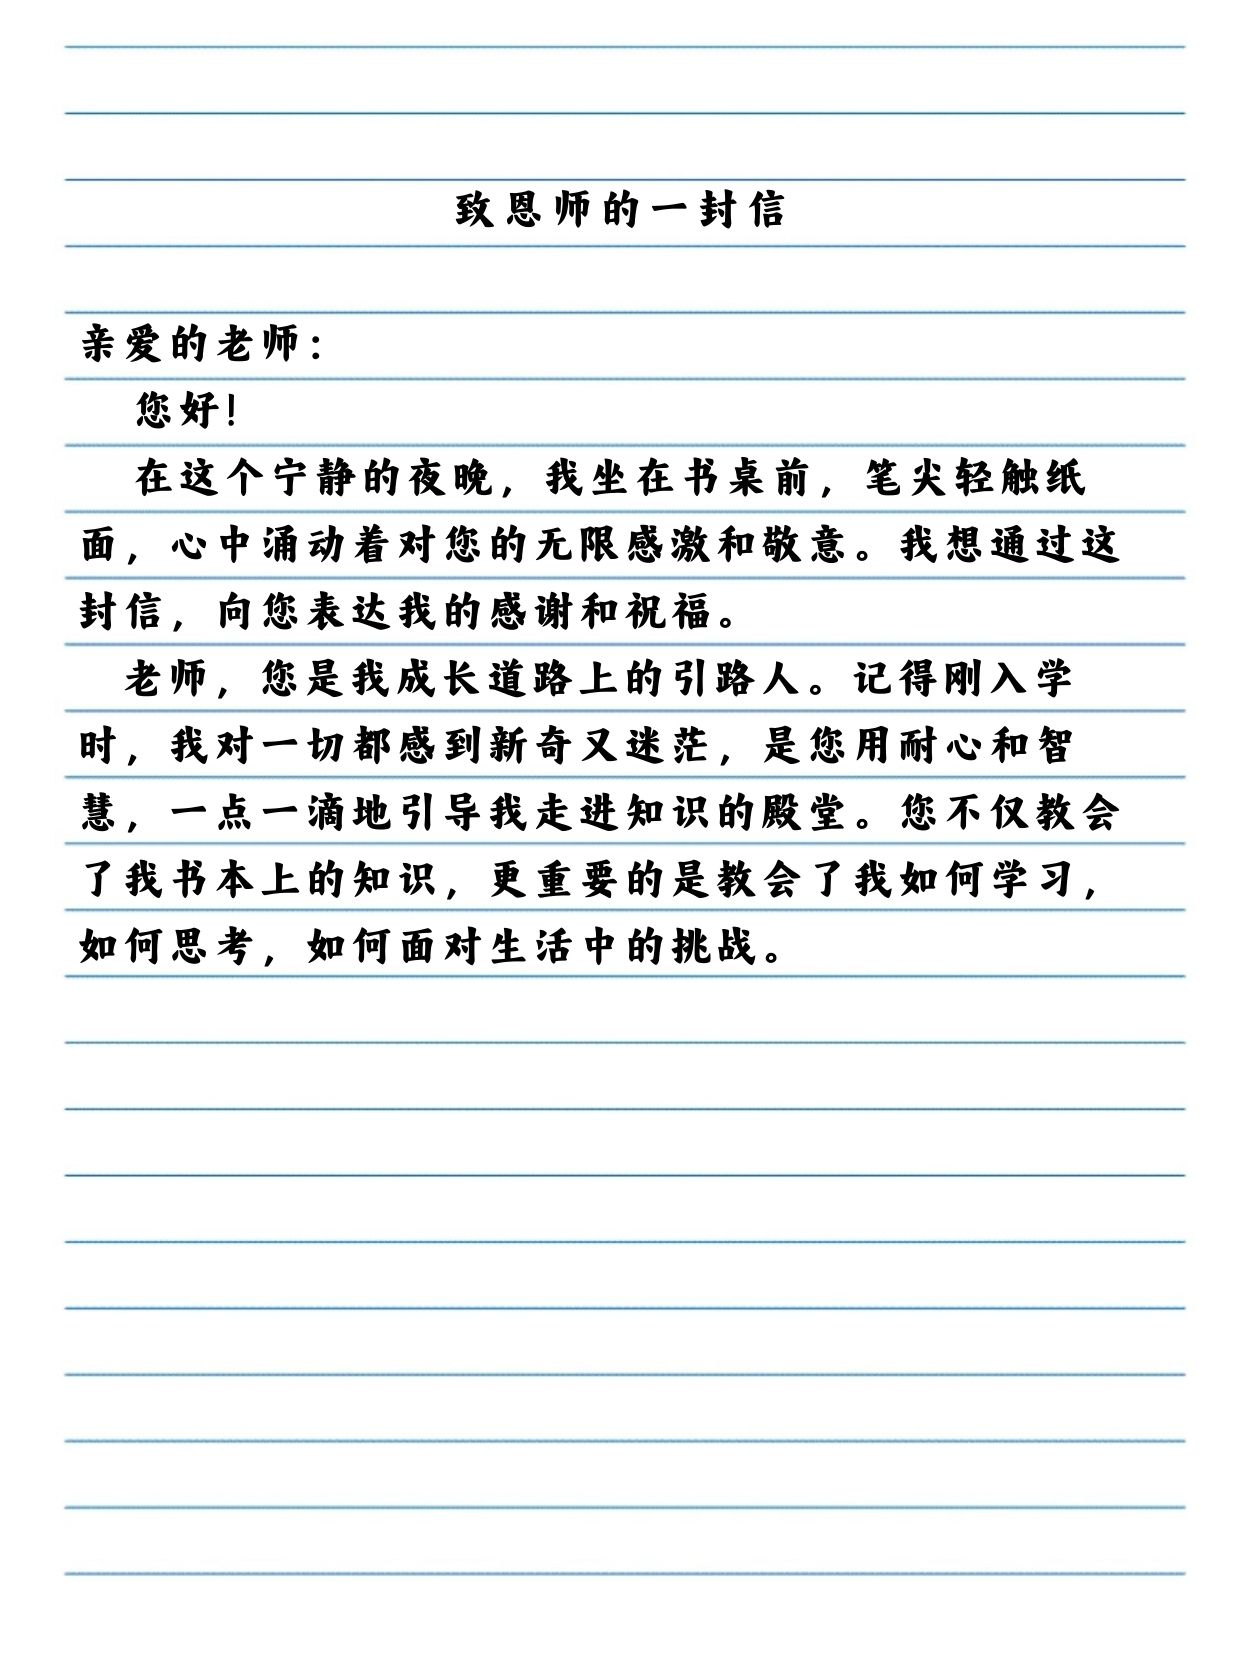 致恩师的一封信
亲爱的老师：
您好！
在这个宁静的夜晚，我坐在书桌前，笔尖轻触纸
面，心中涌动着对您的无限感激和敬意。我想通过这
封信，向您表达我的感谢和祝福。
老师，您是我成长道路上的引路人。记得刚入学
时，我对一切都感到新奇又迷茫，是您用耐心和智
慧，一点一滴地引导我走进知识的殿堂。您不仅教会
了我书本上的知识，更重要的是教会了我如何学习，
如何思考，如何面对生活中的挑战。